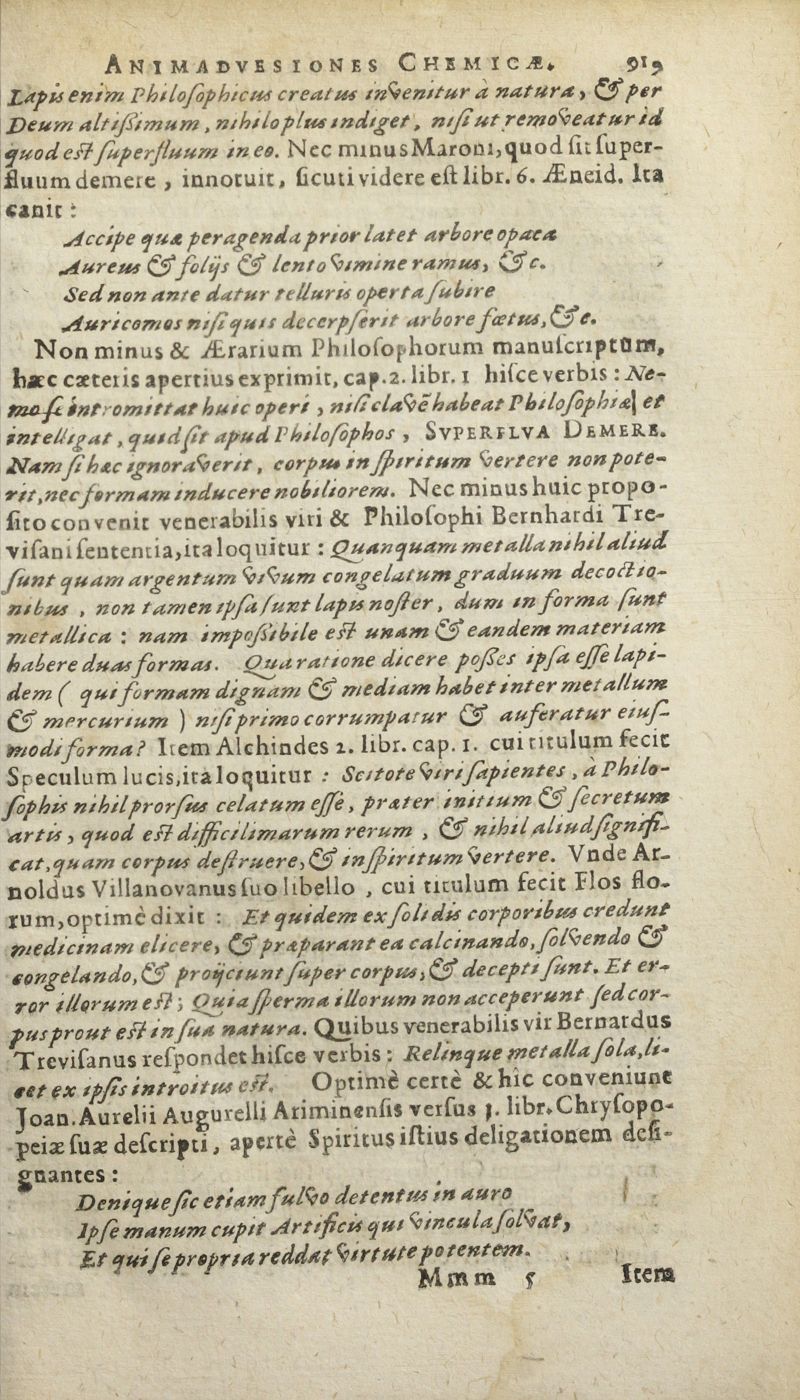 ANIMADVESIONES CHEMICÆ. 919
Lapis enim Philoſophicus creatus invenitur à natura, & per
Deum altiſſimum, nihilo plus indiget, niſi ut removeatur id
quod eſt ſuperfluum in eo. Nec minus Maroni, quod ſit ſuper-
fluum demere, innotuit, ſicuti videre eſt libr. 6. Æneid. Ita
canit:
Accipe quæ peragenda prior latet arbore opaca
Aureus & folijs & lento vimine ramus, &c.
Sed non ante datur telluris operta ſubire
Auricomos niſi quis decerpſerit arbore fœtus, &c.
Non minus & Ærarium Philoſophorum manuſcriptum,
hæc cæteris apertius exprimit, cap. 2. libr. 1 hiſce verbis: Ne-
mo ſe intromittat huic operi, niſi clavē habeat Philoſophiæ et
intelligat, quid ſit apud Philoſophos, SVPERFLVA DEMERE.
Nam ſi hæc ignoraverit, corpus in ſpiritum vertere non pote-
rit, nec formam inducere nobiliorem. Nec minus huic propo-
ſito convenit venerabilis viri & Philoſophi Bernhardi Tre-
viſani ſententia, ita loquitur: Quanquam metalla nihil aliud
ſunt quam argentum vivum congelatum graduum decoctio-
nibus, non tamen ipſa ſunt lapis noſter, dum in forma ſunt
metallica: nam impoſſibile eſt unam & eandem materiam
habere duas formas. Qua ratione dicere poſſes ipſa eſſe lapi-
dem ( qui formam dignam & mediam habet inter metallum
& mercurium ) niſi primo corrumpatur & auferatur eiuſ-
modi forma? Item Alchindes 2. libr. cap. 1. cui titulum fecit
Speculum lucis, ita loquitur: Scitote viri ſapientes, à Philo-
ſophis nihil prorſus celatum eſſe, præter initium & ſecretum
artis, quod eſt difficilimarum rerum, & nihil aliud ſignifi-
cat, quam corpus deſtruere, & in ſpiritum vertere. Vnde Ar-
noldus Villanovanus ſuo libello, cui titulum fecit Flos flo-
rum, optimè dixit: Et quidem ex ſolidis corporibus credunt
medicinam elicere, & præparant ea calcinando, ſolvendo &
congelando, & proijciunt ſuper corpus, & decepti ſunt. Et er-
ror illorum eſt; Quia ſperma illorum non acceperunt ſed cor-
pus prout eſt in ſua natura. Quibus venerabilis vir Bernardus
Treviſanus reſpondet hiſce verbis: Relinque metalla ſola, li-
cet ex ipſis introitus eſt. Optimè certè & hîc conveniunt
Joan. Aurelii Augurelli Ariminenſis verſus 3. libr. Chryſopo-
peiæ ſuæ deſcripti, apertè Spiritus iſtius deligationem deſi-
gnantes:
Denique ſic etiam fulvo detentus in auro
Ipſe manum cupit Artificis qui vincula ſolvat,
Et qui ſe propria reddat virtute potentem.
Mmm 5 Item